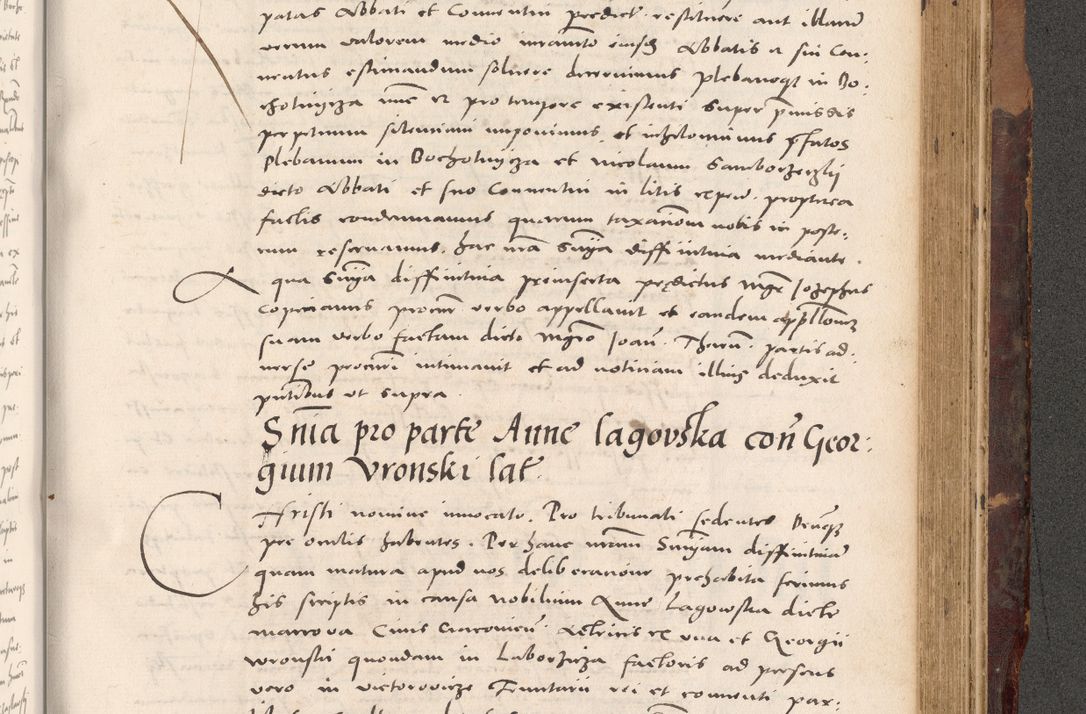 patas Abbati et Conuentui predict. restituere aut illarum
verum valorem medio iuramento eiusdem Abbatis et sui Con-
uentus estimandum soluere decernimus plebanoque in Bo-
chotnycza nunc et pro tempore existenti super premissis
perpetuum silentium imponimus et nihilominus prefatos
Plebanum in Bochotnycza et Nicolaum Samborzeczkij
dicto Abbati et suo Conuentui in litis expen. propterea
factis condemnamus quarum taxationem nobis in poste-
rum reseruamus. hac nra Snia diffinitiua mediante.
A qua Snia diffinitiua preinserta predictus Mgr Josephus
Copicianus procur verbo appellauit et eandem appellonem
suam verbo factam dicto Mgro Joan. Thren. partis ad-
uerse procuri intimauit et ad notitiam illius deduxit
pntibus vt supra.
Snia pro parte Anne Lagovska con Geor-
gium Vronski lat.
CHristi nomine inuocato. Pro tribunali sedentes Deumque
pre oculis habentes. Per hanc nram Sniam diffinitiuam
quam matura apud nos deliberatione prehabita ferimus
his scriptis in causa nobilium Anne Lagowska dicte
Ciuis Cracouien. Actricis ex vna et Georgii
Wronski quondam in Laborzicza factoris ad presens
vero in Rei et conuenti par-